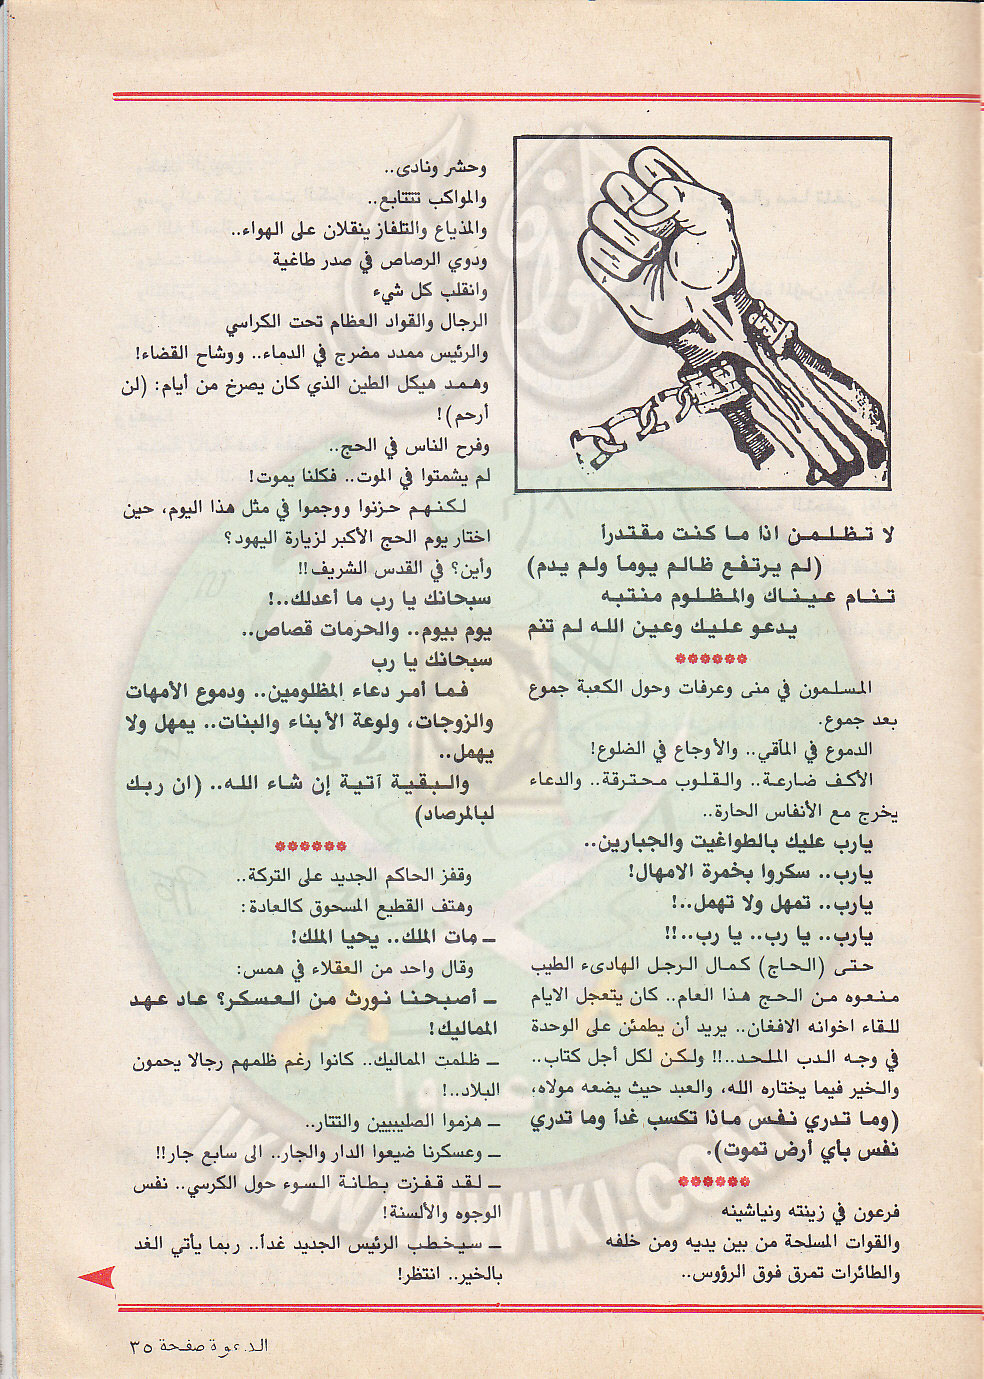 لا تظلمن اذا ما كنت مقتدراً
(لم يرتفع ظالم يوماً ولم يدم)
تنام عيناك والمظلوم منتبه
يدعو عليك وعين الله لم تنم
المسلمون في منى وعرفات وحول الكعبة جموع
بعد جموع.
الدموع في المآقي.. والأوجاع في الضلوع!
الأكف ضارعة.. والقلوب محترقة.. والدعاء
يخرج مع الأنفاس الحارة..
يارب عليك بالطواغيت والجبارين..
يارب.. سكروا بخمرة الامهال!
يارب.. تمهل ولا تهمل..!
يارب.. يا رب.. يا رب..!!
حتى (الحاج) كمال الرجل الهادىء الطيب
منعوه من الحج هذا العام.. كان يتعجل الايام
للقاء اخوانه الافغان.. يريد أن يطمئن على الوحدة
في وجه الدب الملحد..!! ولكن لكل أجل كتاب..
والخير فيما يختاره الله، والعبد حيث يضعه مولاه،
(وما تدري نفس ماذا تكسب غداً وما تدري
نفس بأي أرض تموت).
فرعون في زينته ونياشينه
والقوات المسلحة من بين يديه ومن خلفه
والطائرات تمرق فوق الرؤوس..
وحشر ونادى..
والمواكب تتتابع..
والمذياع والتلفاز ينقلان على الهواء..
ودوي الرصاص في صدر طاغية
وانقلب كل شيء
الرجال والقواد العظام تحت الكراسي
والرئيس ممدد مضرج في الدماء.. ووشاح القضاء!
وهمد هيكل الطين الذي كان يصرخ من أيام: (لن
أرحم)!
وفرح الناس في الحج..
لم يشمتوا في الموت.. فكلنا يموت!
لكنهم حزنوا ووجموا في مثل هذا اليوم، حين
اختار يوم الحج الأكبر لزيارة اليهود؟
وأين؟ في القدس الشريف!!
سبحانك يا رب ما أعدلك..!
يوم بيوم.. والحرمات قصاص..
سبحانك يا رب
فما أمر دعاء المظلومين.. ودموع الأمهات
والزوجات، ولوعة الأبناء والبنات.. يمهل ولا
يهمل..
والبقية آتية إن شاء الله.. (ان ربك
لبالمرصاد)
وقفز الحاكم الجديد على التركة..
وهتف القطيع المسحوق كالعادة:
ـ مات الملك.. يحيا الملك!
وقال واحد من العقلاء في همس:
ـ أصبحنا نورث من العسكر؟ عاد عهد
المماليك!
ـ ظلمت المماليك.. كانوا رغم ظلمهم رجالا يحمون
البلاد..!
ـ هزموا الصليبيين والتتار..
ـ وعسكرنا ضيعوا الدار والجار.. الى سابع جار!!
ـ لقد قفزت بطانة السوء حول الكرسي.. نفس
الوجوه والألسنة!
ـ سيخطب الرئيس الجديد غداً.. ربما يأتي الغد
بالخير.. انتظر!
الدعوة صفحة ٣٥
IKHWANWIKI.COM